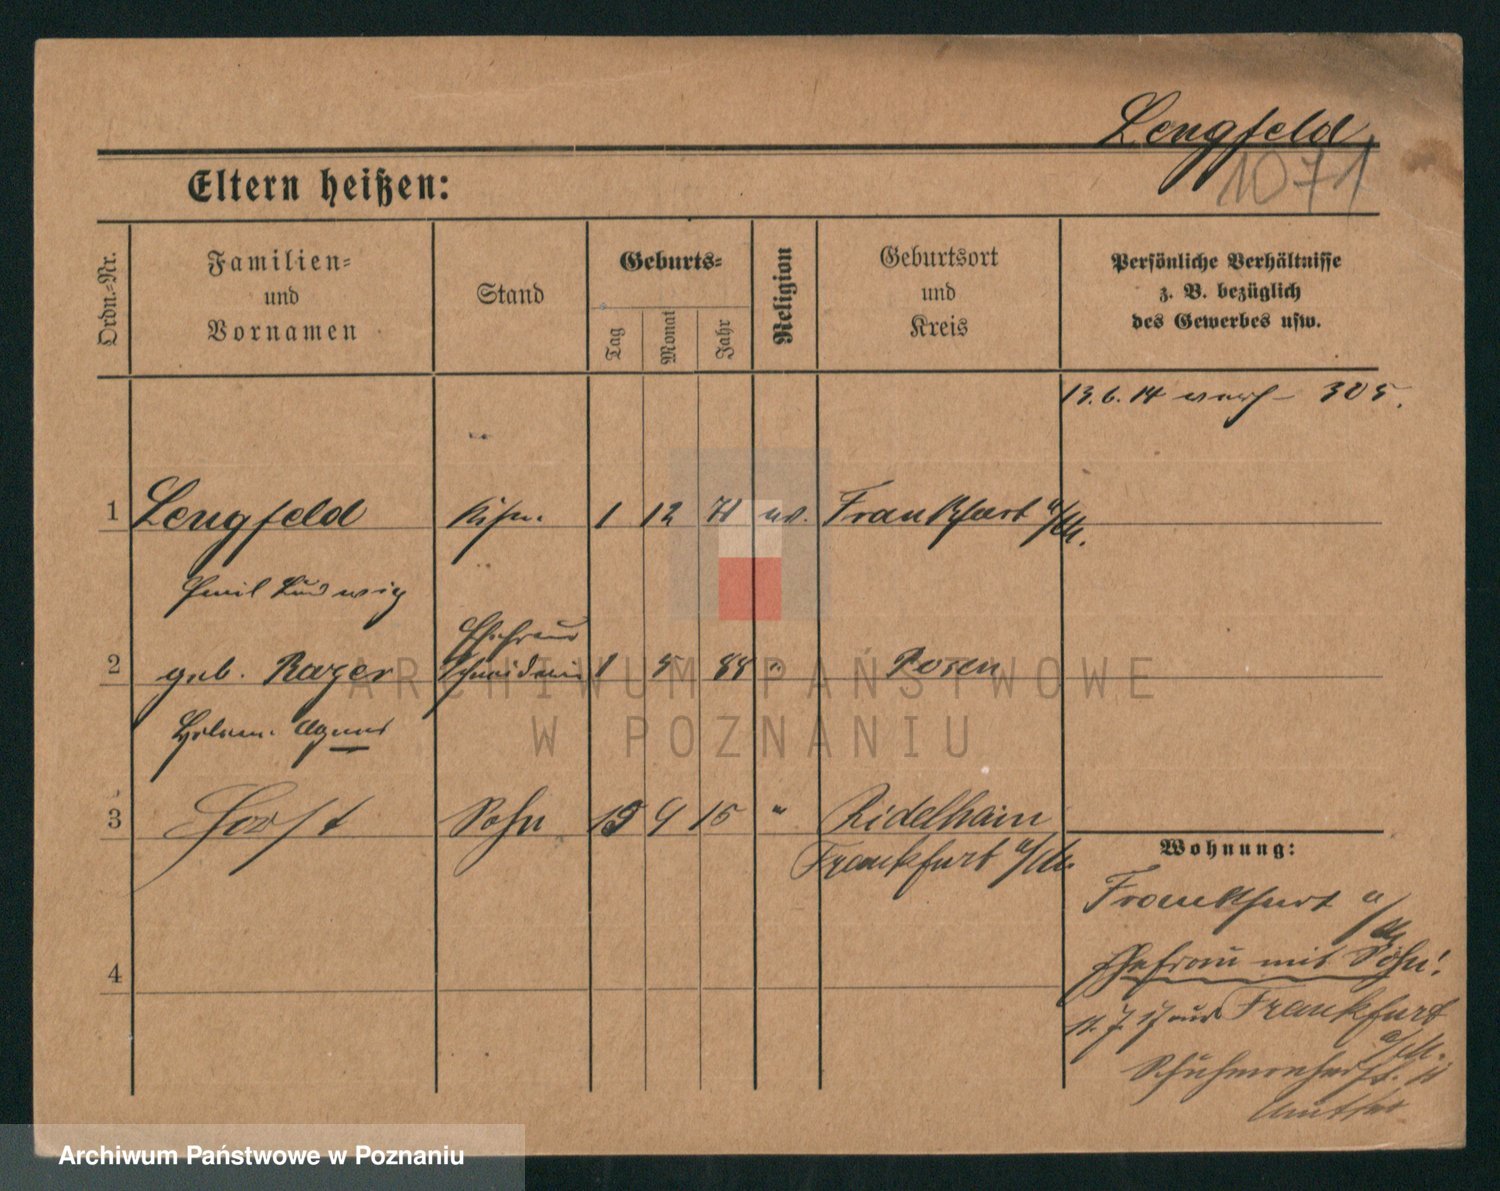 Lengfeld
1071
Eltern heißen:
Ordn.-Nr.
Familien-
und
Vornamen
Stand
Geburts-
Tag
Monat
Jahr
Religion
Geburtsort
und
Kreis
Persönliche Verhältnisse
z. B. bezüglich
des Gewerbes usw.
13. 6. 14 verh 305.
1 Lengfeld 1 12 71 ev. Frankfurt a/M.
Emil Ludwig
Ehefrau
2 geb. Rayer 1 5 88 " Posen
Helen. Agnes
3 Horst Sohn 15 9 15 " Ridelhaim
Frankfurt a/M.
Wohnung:
Frankfurt a/M
Ehefrau mit Sohn!
4
11. 7. 17 aus Frankfurt
a/M.
ARCHIWUM PAŃSTWOWE
W POZNANIU
Archiwum Państwowe w Poznaniu